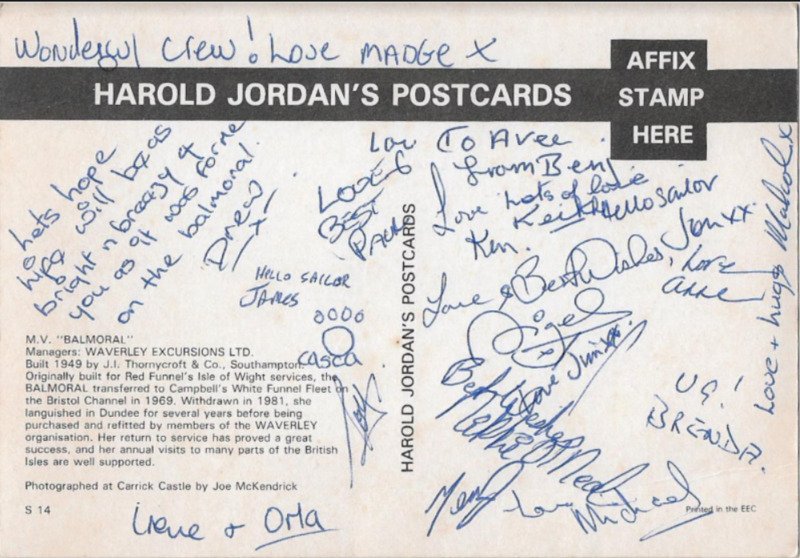 Wonderful Crew! Love MADGE X
AFFIX
STAMP
HERE
HAROLD JORDAN'S POSTCARDS
Lets hope
will be as
bright n breezy 4
you as it was for me
on the balmoral.
Drew!
LOVE &
BEST
Love To Avee
from Ben
Love Lots of love
Keith Hello Sailor
Ken.
HELLO SAILOR
JAMES
oooo
Casca
Love & Best Wishes, Jon xx
Love
Anne
Nigel
Love Jun xx
Best Wishes
Love + hugs Malcolm x
UG!
BRENDA.
HAROLD JORDAN'S POSTCARDS
M.V. "BALMORAL"
Managers: WAVERLEY EXCURSIONS LTD.
Built 1949 by J.I. Thornycroft & Co., Southampton.
Originally built for Red Funnel's Isle of Wight services, the
BALMORAL transferred to Campbell's White Funnel Fleet on
the Bristol Channel in 1969. Withdrawn in 1981, she
languished in Dundee for several years before being
purchased and refitted by members of the WAVERLEY
organisation. Her return to service has proved a great
success, and her annual visits to many parts of the British
Isles are well supported.
Photographed at Carrick Castle by Joe McKendrick
S 14
Irene + Orla
Love
Michael
Printed in the EEC